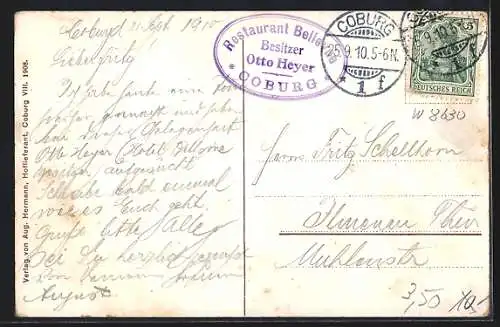 Coburg 21. Sept. 1910
Lieber Fritz
Ich habe heute eine
gemacht und
diese Gelegenheit
Otto Heyer (Hotel Bellevue
aufgesucht
Schreibe bald einmal
wie es Euch geht
Grüße bitte Alle
Sei Du herzlich gegrüßt
von Deinem
August
Verlag von Aug. Hermann, Hoflieferant, Coburg VIII. 1908.
Restaurant Bellevue
Besitzer
Otto Heyer
* COBURG *
COBURG
25.9.10.5-6N.
* 1 f
COBURG
9.10.5
1 f
5
DEUTSCHES REICH
W 8630
Herrn Fritz Schellhorn
Ilmenau Thür
Mühlenstr
3,50